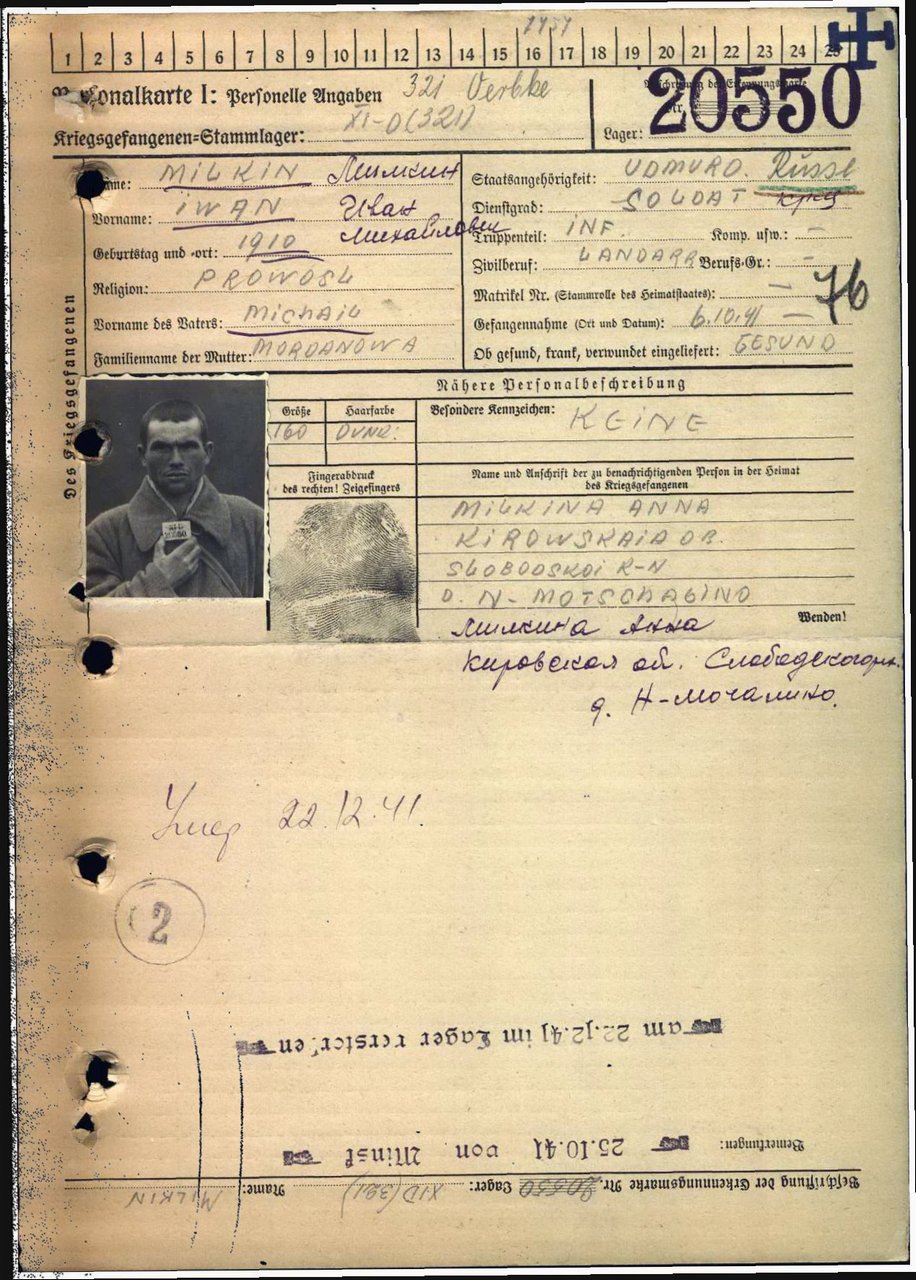 1 2 3 4 5 6 7 8 9 10 11 12 13 14 15 16 17 18 19 20 21 22 23 24 25
onalkarte I: Personelle Angaben 321 Oerbke
Kriegsgefangenen=Stammlager: XI-D(321)
Lager:
20550
Des Kriegsgefangenen
me: MILKIN Милкин
Vorname: IWAN Иван
Михайлович
Geburtstag und =ort: 1910
Religion: PROWOSL
Vorname des Vaters: MICHAIL
Familienname der Mutter: MORDANOWA
Staatsangehörigkeit: UDMURD. Russe
Dienstgrad: SOLDAT
Truppenteil: INF. Komp. usw.: —
Zivilberuf: LANDARB Berufs=Gr.: —
Matrikel Nr. (Stammrolle des Heimatstaates): — 76
Gefangennahme (Ort und Datum): 6.10.41 —
Ob gesund, krank, verwundet eingeliefert: GESUND
Nähere Personalbeschreibung
Größe Haarfarbe Besondere Kennzeichen: KEINE
160
Fingerabdruck
des rechten! Zeigefingers
Name und Anschrift der zu benachrichtigenden Person in der Heimat
des Kriegsgefangenen
MILKINA ANNA
KIROWSKAIA OB.
SLOBODSKOI R-N
D. N-MOTSCHALINO
Wenden!
Милкина Анна
Кировская об. Слободского рн.
д. Н-Мочалино.
Умер 22.12.41.
2
am 22.12.41 im Lager verstorben
Bemerkungen: 25.10.41 von Minsk
Beschriftung der Erkennungsmarke Nr. 20550 Lager: XID(321) Name: MILKIN